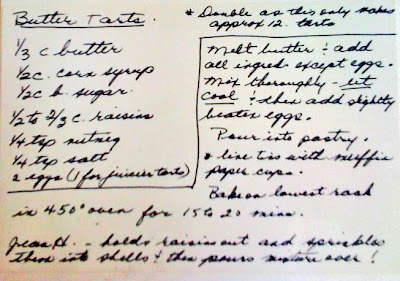 Butter Tarts.
* Double as this only makes
approx 12 tarts
1/3 c butter
1/2 c. corn syrup
1/2 c b. sugar.
1/2 to 2/3 c. raisins
1/4 tsp nutmeg
1/4 tsp salt
2 eggs (1 for juicier tarts)
Melt butter & add
all ingred. except eggs.
Mix thoroughly - let
cool & then add slightly
beaten eggs.
Pour into pastry.
* line tins with muffin
paper cups.
Bake on lowest rack
in 450° oven for 15 to 20 mins.
Jean H. - holds raisins out and sprinkles
them into shells & then pours mixture over!